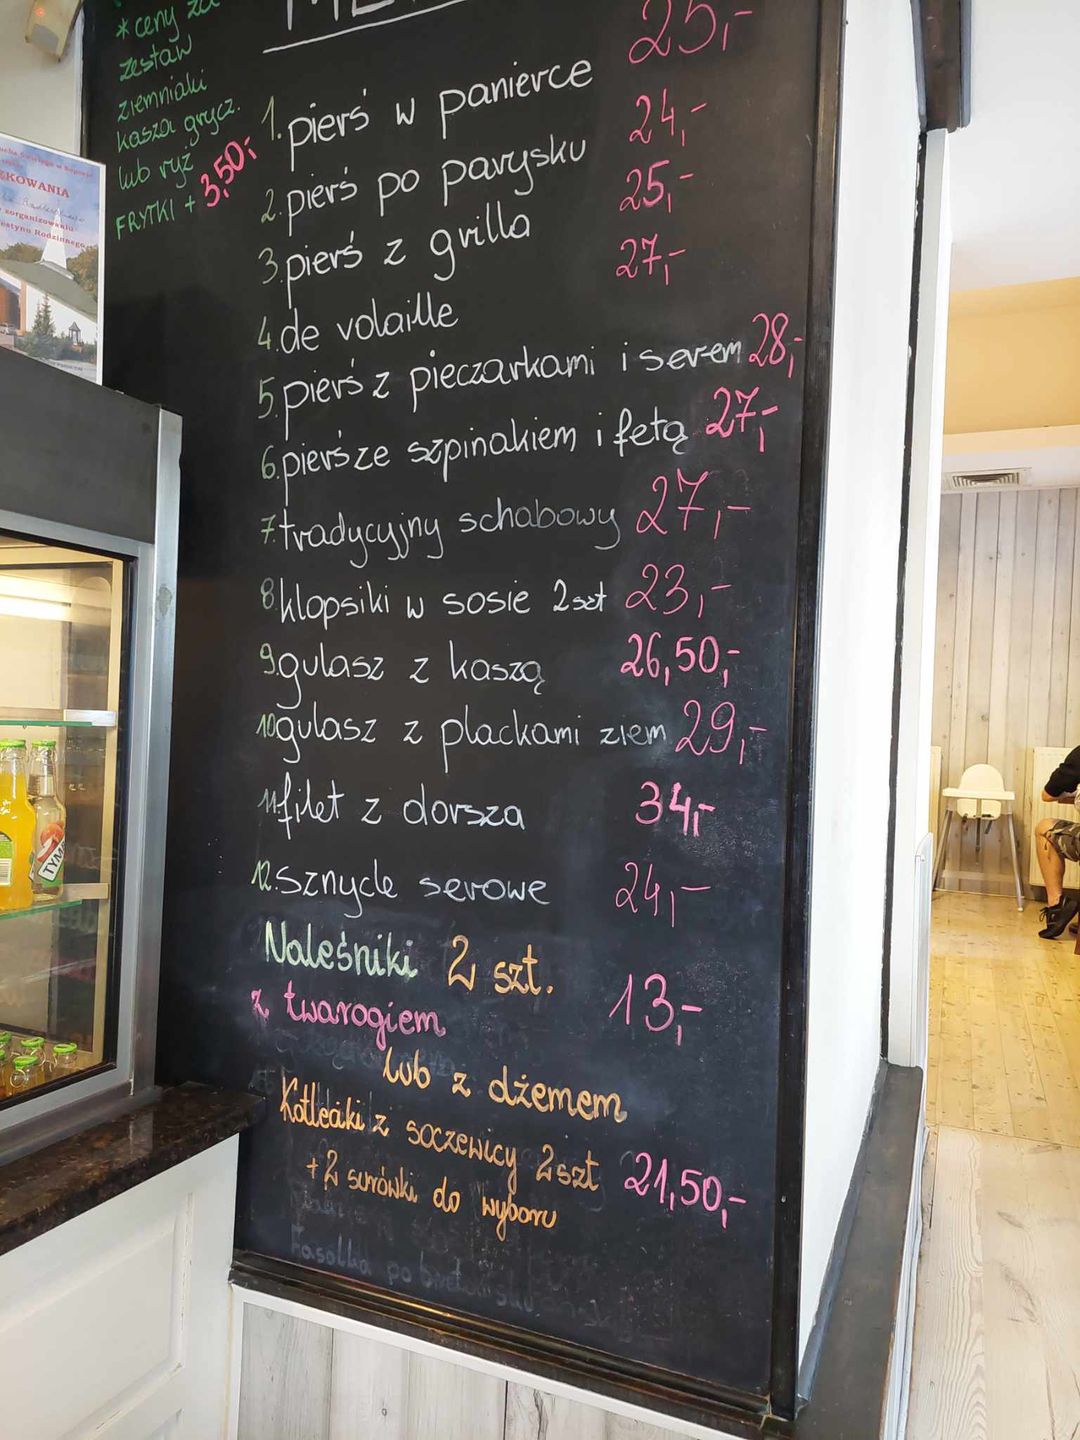 * ceny za
zestaw
ziemniaki
kasza grycz.
lub ryż
FRYTKI + 3,50,-
1. pierś w panierce 25,-
2. pierś po parysku 24,-
3. pierś z grilla 25,-
4. de volaille 27,-
5. pierś z pieczarkami i serem 28,-
6. pierś ze szpinakiem i fetą 27,-
7. tradycyjny schabowy 27,-
8. klopsiki w sosie 2szt 23,-
9. gulasz z kaszą 26,50,-
10 gulasz z plackami ziem 29,-
11. filet z dorsza 34,-
12. sznycle serowe 24,-
Naleśniki 2 szt. 13,-
z twarogiem
lub z dżemem
Kotleciki z soczewicy 2szt 21,50,-
+ 2 surówki do wyboru
Fasolka po bretońsku
KOWANIA
zorganizowaniu
Rodzinnego
TYM